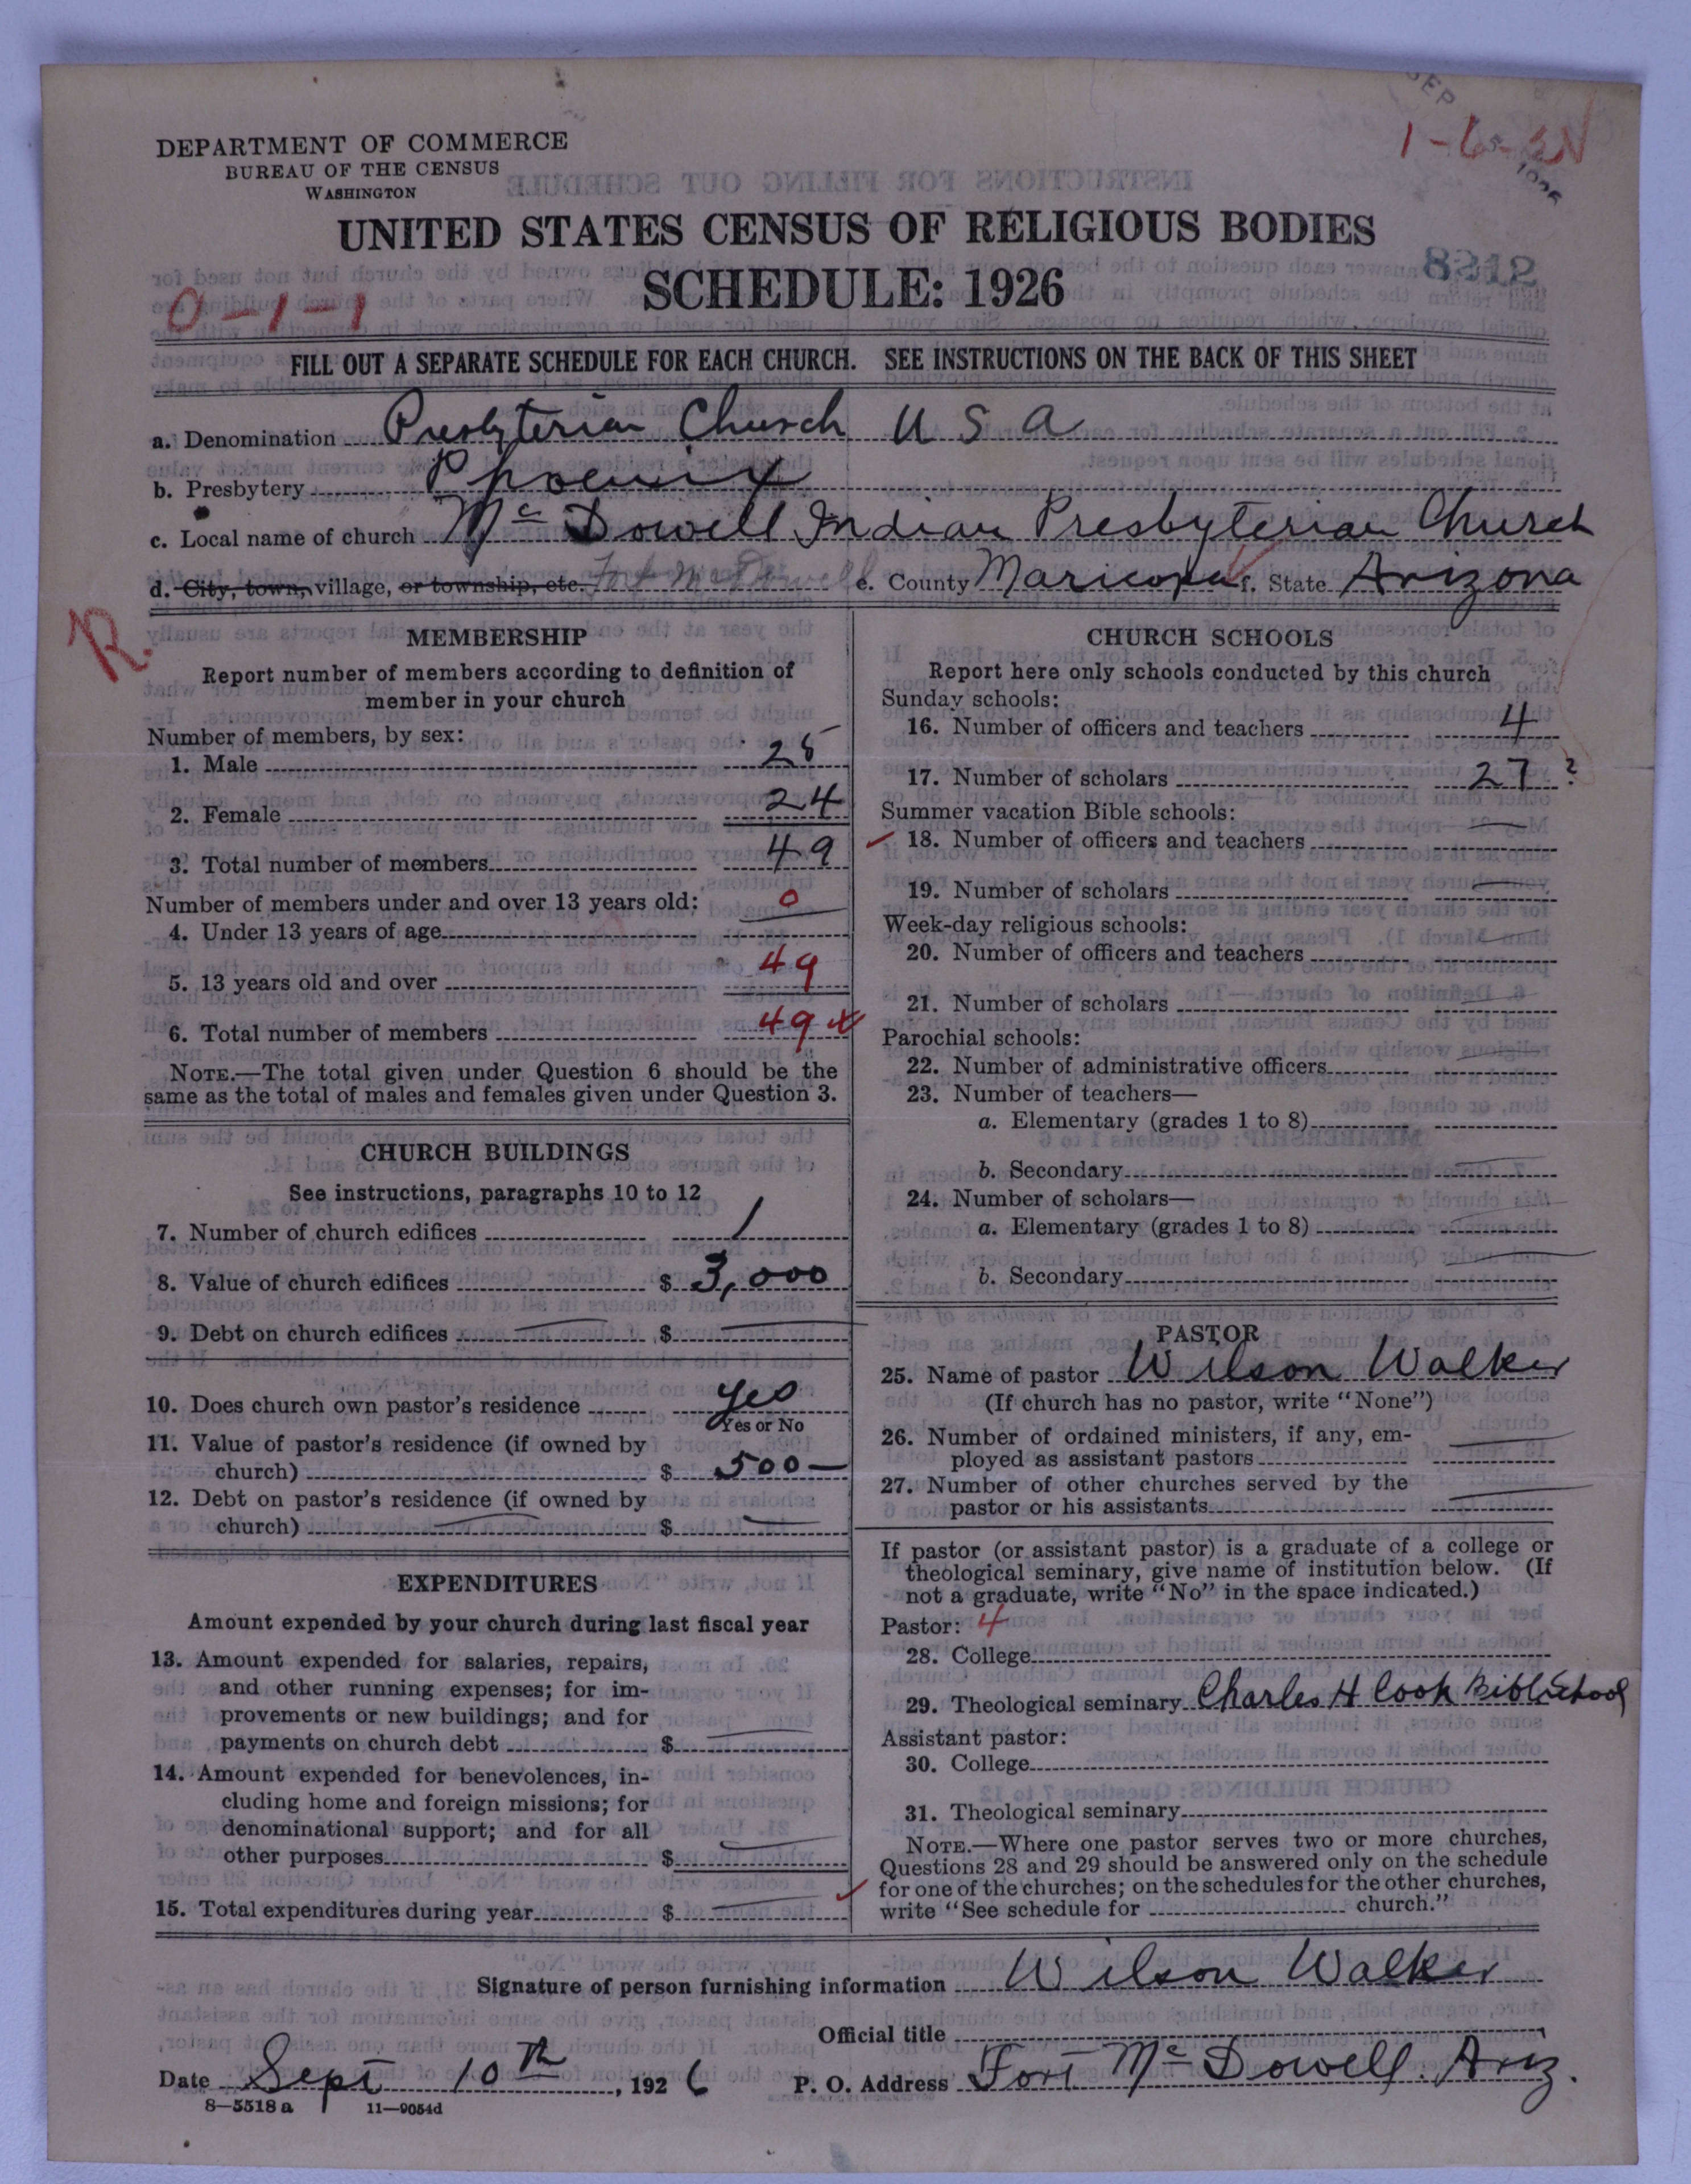 DEPARTMENT OF COMMERCE
BUREAU OF THE CENSUS
WASHINGTON
SEP
1926
1-6-
UNITED STATES CENSUS OF RELIGIOUS BODIES
SCHEDULE: 1926
8212
0-1-1
FILL OUT A SEPARATE SCHEDULE FOR EACH CHURCH. SEE INSTRUCTIONS ON THE BACK OF THIS SHEET
a. Denomination Presbyterian Church U S A
b. Presbytery Phoenix
c. Local name of church Mc Dowell Indian Presbyterian Church
d. City, town, village, or township, etc. Fort McDowell e. County Maricopa f. State Arizona
R.
MEMBERSHIP
Report number of members according to definition of
member in your church
Number of members, by sex:
1. Male 25
2. Female 24
3. Total number of members 49
Number of members under and over 13 years old:
4. Under 13 years of age 0
5. 13 years old and over 49
6. Total number of members 49 x
NOTE.—The total given under Question 6 should be the
same as the total of males and females given under Question 3.
CHURCH BUILDINGS
See instructions, paragraphs 10 to 12
7. Number of church edifices 1
8. Value of church edifices $ 3,000
9. Debt on church edifices — $ —
10. Does church own pastor's residence yes
Yes or No
11. Value of pastor's residence (if owned by
church) $ 500—
12. Debt on pastor's residence (if owned by
church) — $ —
EXPENDITURES
Amount expended by your church during last fiscal year
13. Amount expended for salaries, repairs,
and other running expenses; for im-
provements or new buildings; and for
payments on church debt $ —
14. Amount expended for benevolences, in-
cluding home and foreign missions; for
denominational support; and for all
other purposes $ —
15. Total expenditures during year $ —
CHURCH SCHOOLS
Report here only schools conducted by this church
Sunday schools:
16. Number of officers and teachers 4
17. Number of scholars 27 ?
Summer vacation Bible schools:
18. Number of officers and teachers —
19. Number of scholars —
Week-day religious schools:
20. Number of officers and teachers —
21. Number of scholars —
Parochial schools:
22. Number of administrative officers —
23. Number of teachers—
a. Elementary (grades 1 to 8)
b. Secondary —
24. Number of scholars—
a. Elementary (grades 1 to 8) —
b. Secondary —
PASTOR
25. Name of pastor Wilson Walker
(If church has no pastor, write "None")
26. Number of ordained ministers, if any, em-
ployed as assistant pastors —
27. Number of other churches served by the
pastor or his assistants —
If pastor (or assistant pastor) is a graduate of a college or
theological seminary, give name of institution below. (If
not a graduate, write "No" in the space indicated.)
Pastor: 4
28. College
29. Theological seminary Charles H Cook Bible School
Assistant pastor:
30. College
31. Theological seminary
NOTE.—Where one pastor serves two or more churches,
Questions 28 and 29 should be answered only on the schedule
for one of the churches; on the schedules for the other churches,
write "See schedule for church."
Signature of person furnishing information Wilson Walker
Official title
Date Sept 10th, 1926 P. O. Address Fort Mc Dowell. Ariz.
8—5518 a 11—9054d